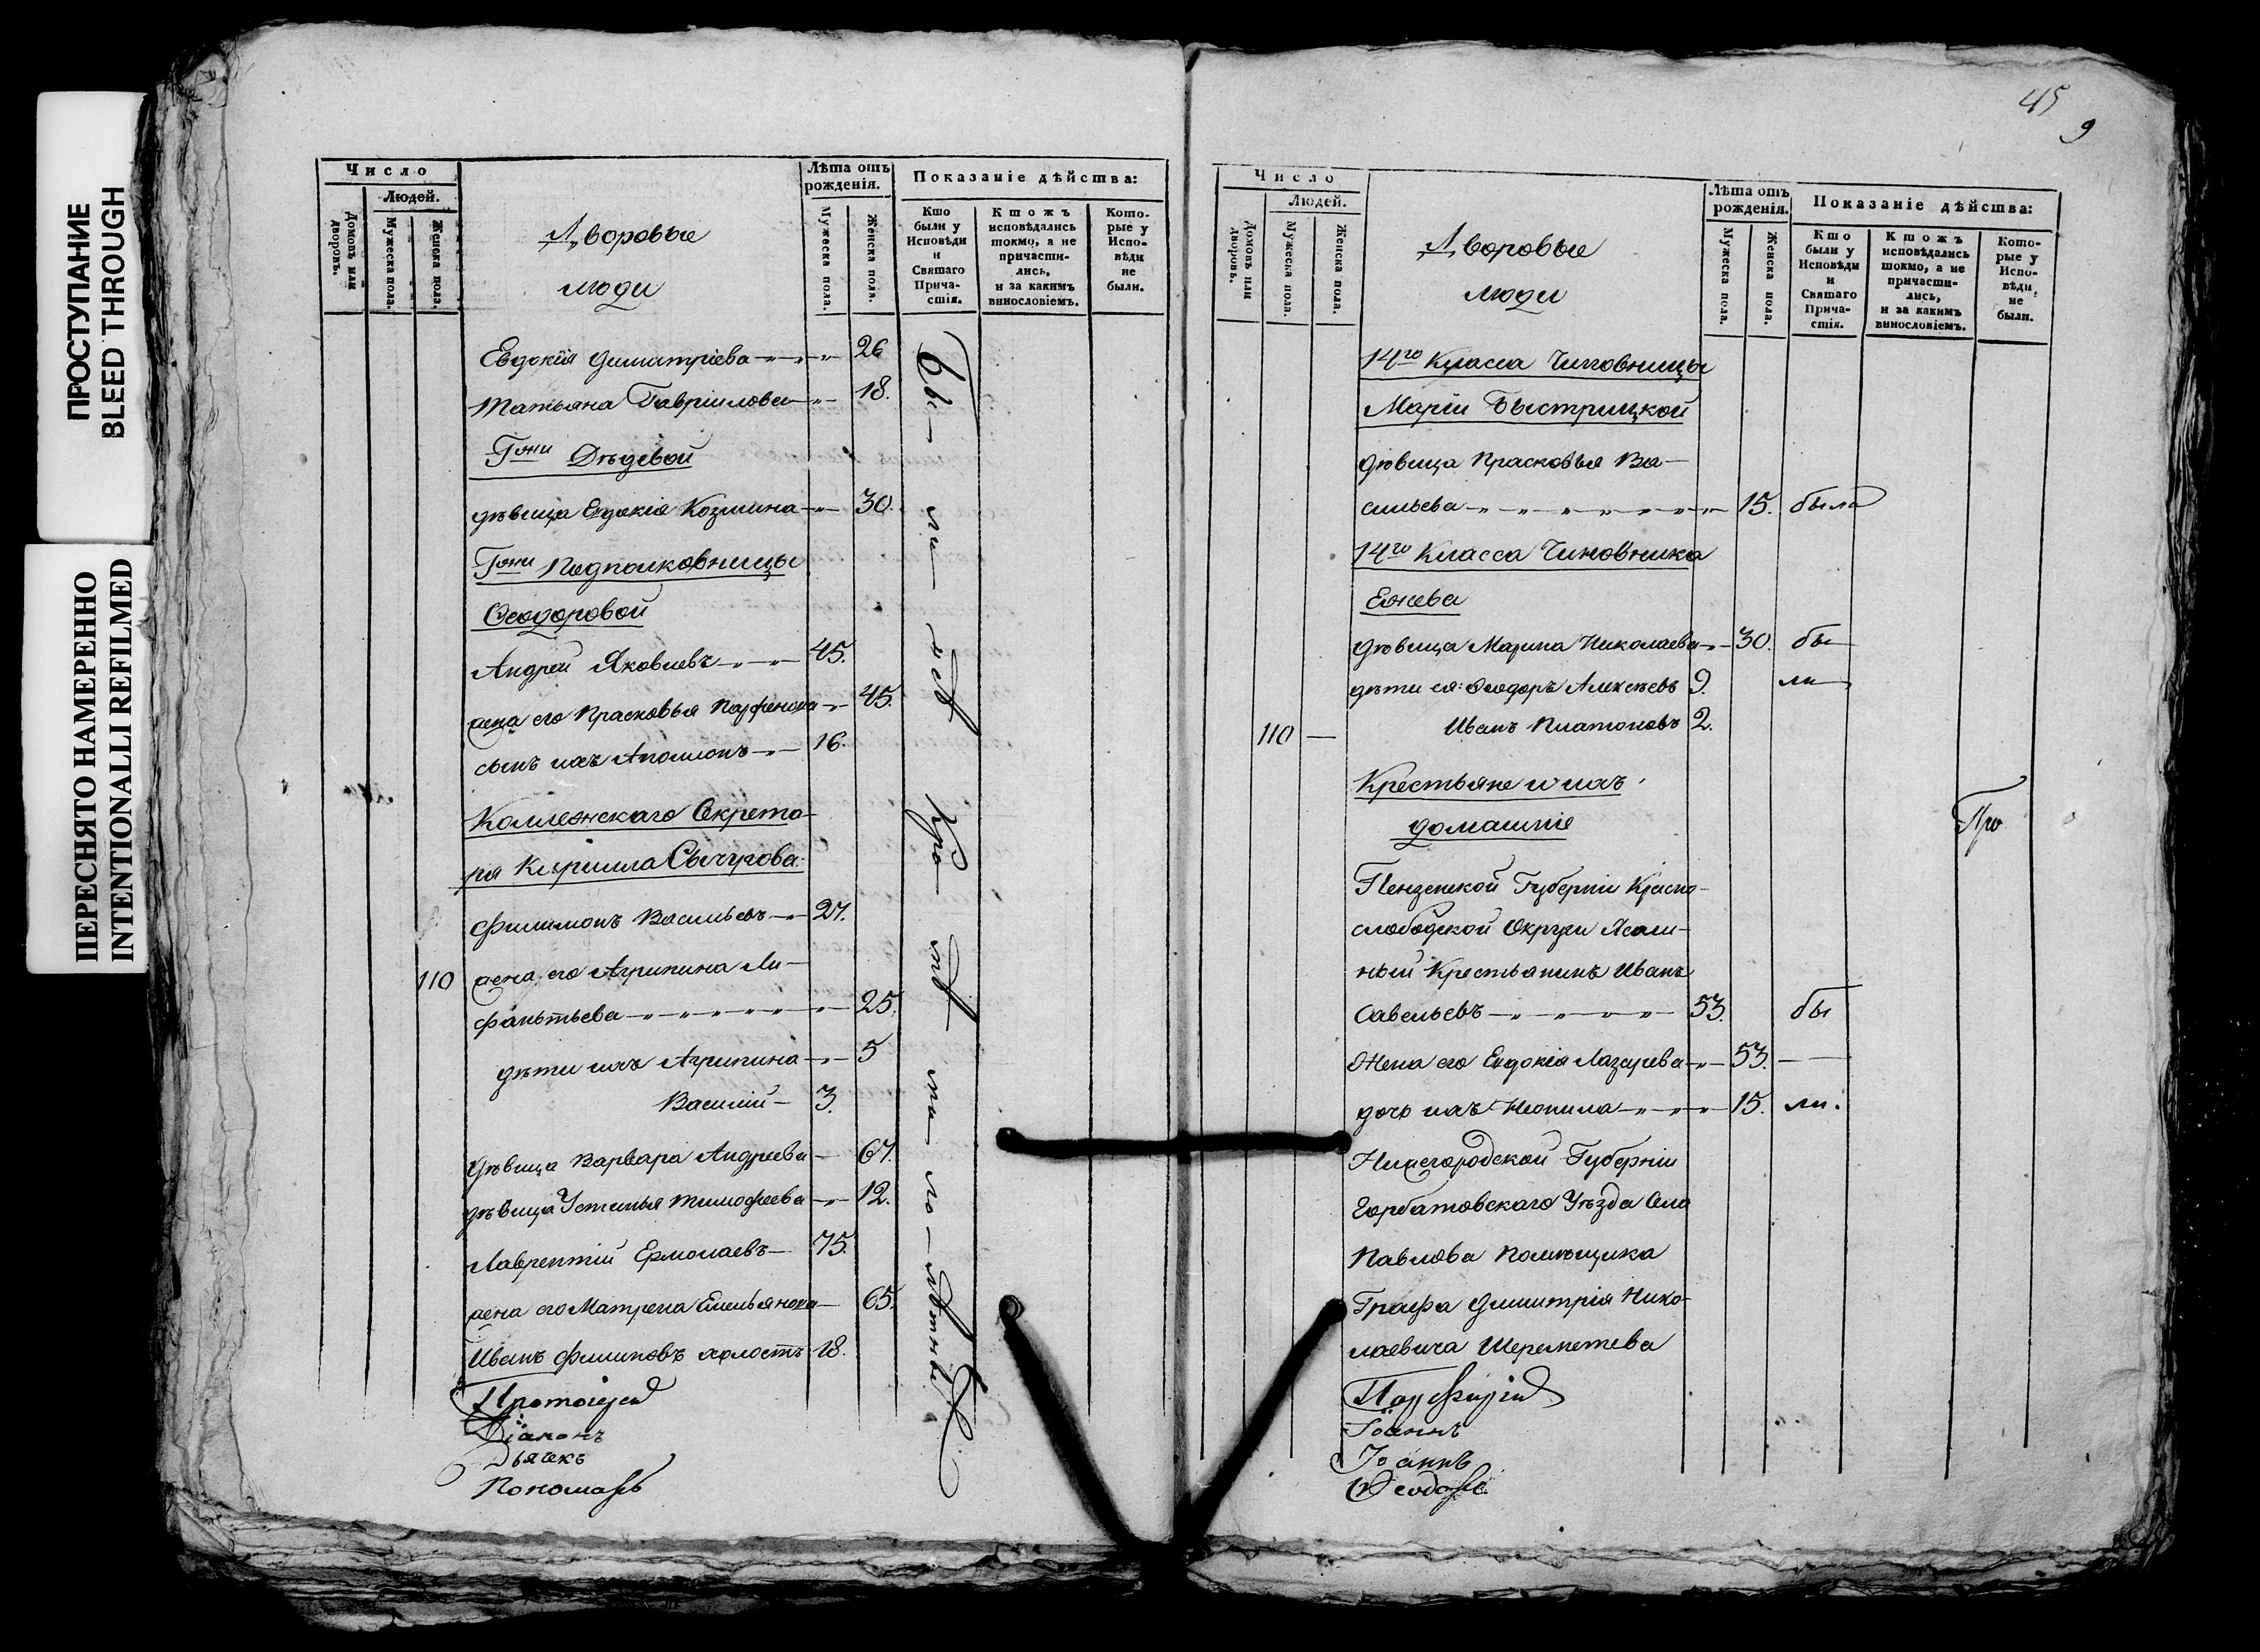 ПРОСТУПАНИЕ
BLEED THROUGH
ПЕРЕСНЯТО НАМЕРЕННО
INTENTIONALLI REFILMED
Число
Людей.
Домовъ или дворовъ.
Мужеска пола.
Женска пола.
Дворовые
люди
Лѣта отъ
рожденія.
Мужеска пола.
Женска пола.
Показаніе дѣйства:
Кто
были у
Исповѣди
и
Святаго
Прича-
стія.
Ктожъ
исповѣдались
токмо, а не
причасти-
лись,
и за какимъ
винословіемъ.
Кото-
рые у
Испо-
вѣди
не
были.
Евдокія Димитріева 26
Татьяна Гавріилова 18.
Гжи Дѣдевой
дѣвица Евдокія Козмина 30.
Гжи Подполковницы
Ѳеодоровой
Андрей Яковлевъ 45.
жена его Прасковья Парфенова 45.
сынъ ихъ Аполлонъ 16.
Коллежскаго Секрета-
ря Кирилла Сычугова
Филимонъ Васильевъ 27.
110 жена его Агрипина Ли-
фантьева 25.
дѣти ихъ Агрипина 5
Василій 3.
дѣвица Варвара Андреева 67.
дѣвица Устинья Тимофеева 12.
Лаврентій Ермолаевъ 75.
жена его Матрена Емельянова 65.
Иванъ Филиповъ холостъ 18.
Бы- ли- всѣ Кро- мѣ ма- ло- лѣтныхъ
Протоіерей
Діаконъ
Дьячекъ
Пономарь
45
9
Число
Людей.
Домовъ или дворовъ.
Мужеска пола.
Женска пола.
Дворовые
люди
Лѣта отъ
рожденія.
Мужеска пола.
Женска пола.
Показаніе дѣйства:
Кто
были у
Исповѣди
и
Святаго
Прича-
стія.
Ктожъ
исповѣдались
токмо, а не
причасти-
лись,
и за какимъ
винословіемъ.
Кото-
рые у
Испо-
вѣди
не
были.
14го Класса Чиновницы
Маріи Быстрицкой
дѣвица Прасковья Ва-
сильева 15. была
14го Класса Чиновника
Ежева
дѣвица Марина Николаева 30. бы
дѣти ея: Ѳеодоръ Алексѣевъ 9. ли
110 Иванъ Платоновъ 2.
Крестьяне и ихъ
домашніе
Про
Пензенской Губерніи Красно-
слободской Округи Ясаш-
ный Крестьянинъ Иванъ
Савельевъ 53. бы
Жена его Евдокія Лазарева 53.
дочь ихъ Неонила 15. ли.
Нижегородской Губерніи
Горбатовскаго Уѣзда Села
Павлова Помѣщика
Графа Димитрія Нико-
лаевича Шереметева
Іоаннъ
Іоаннъ
Ѳеодоръ